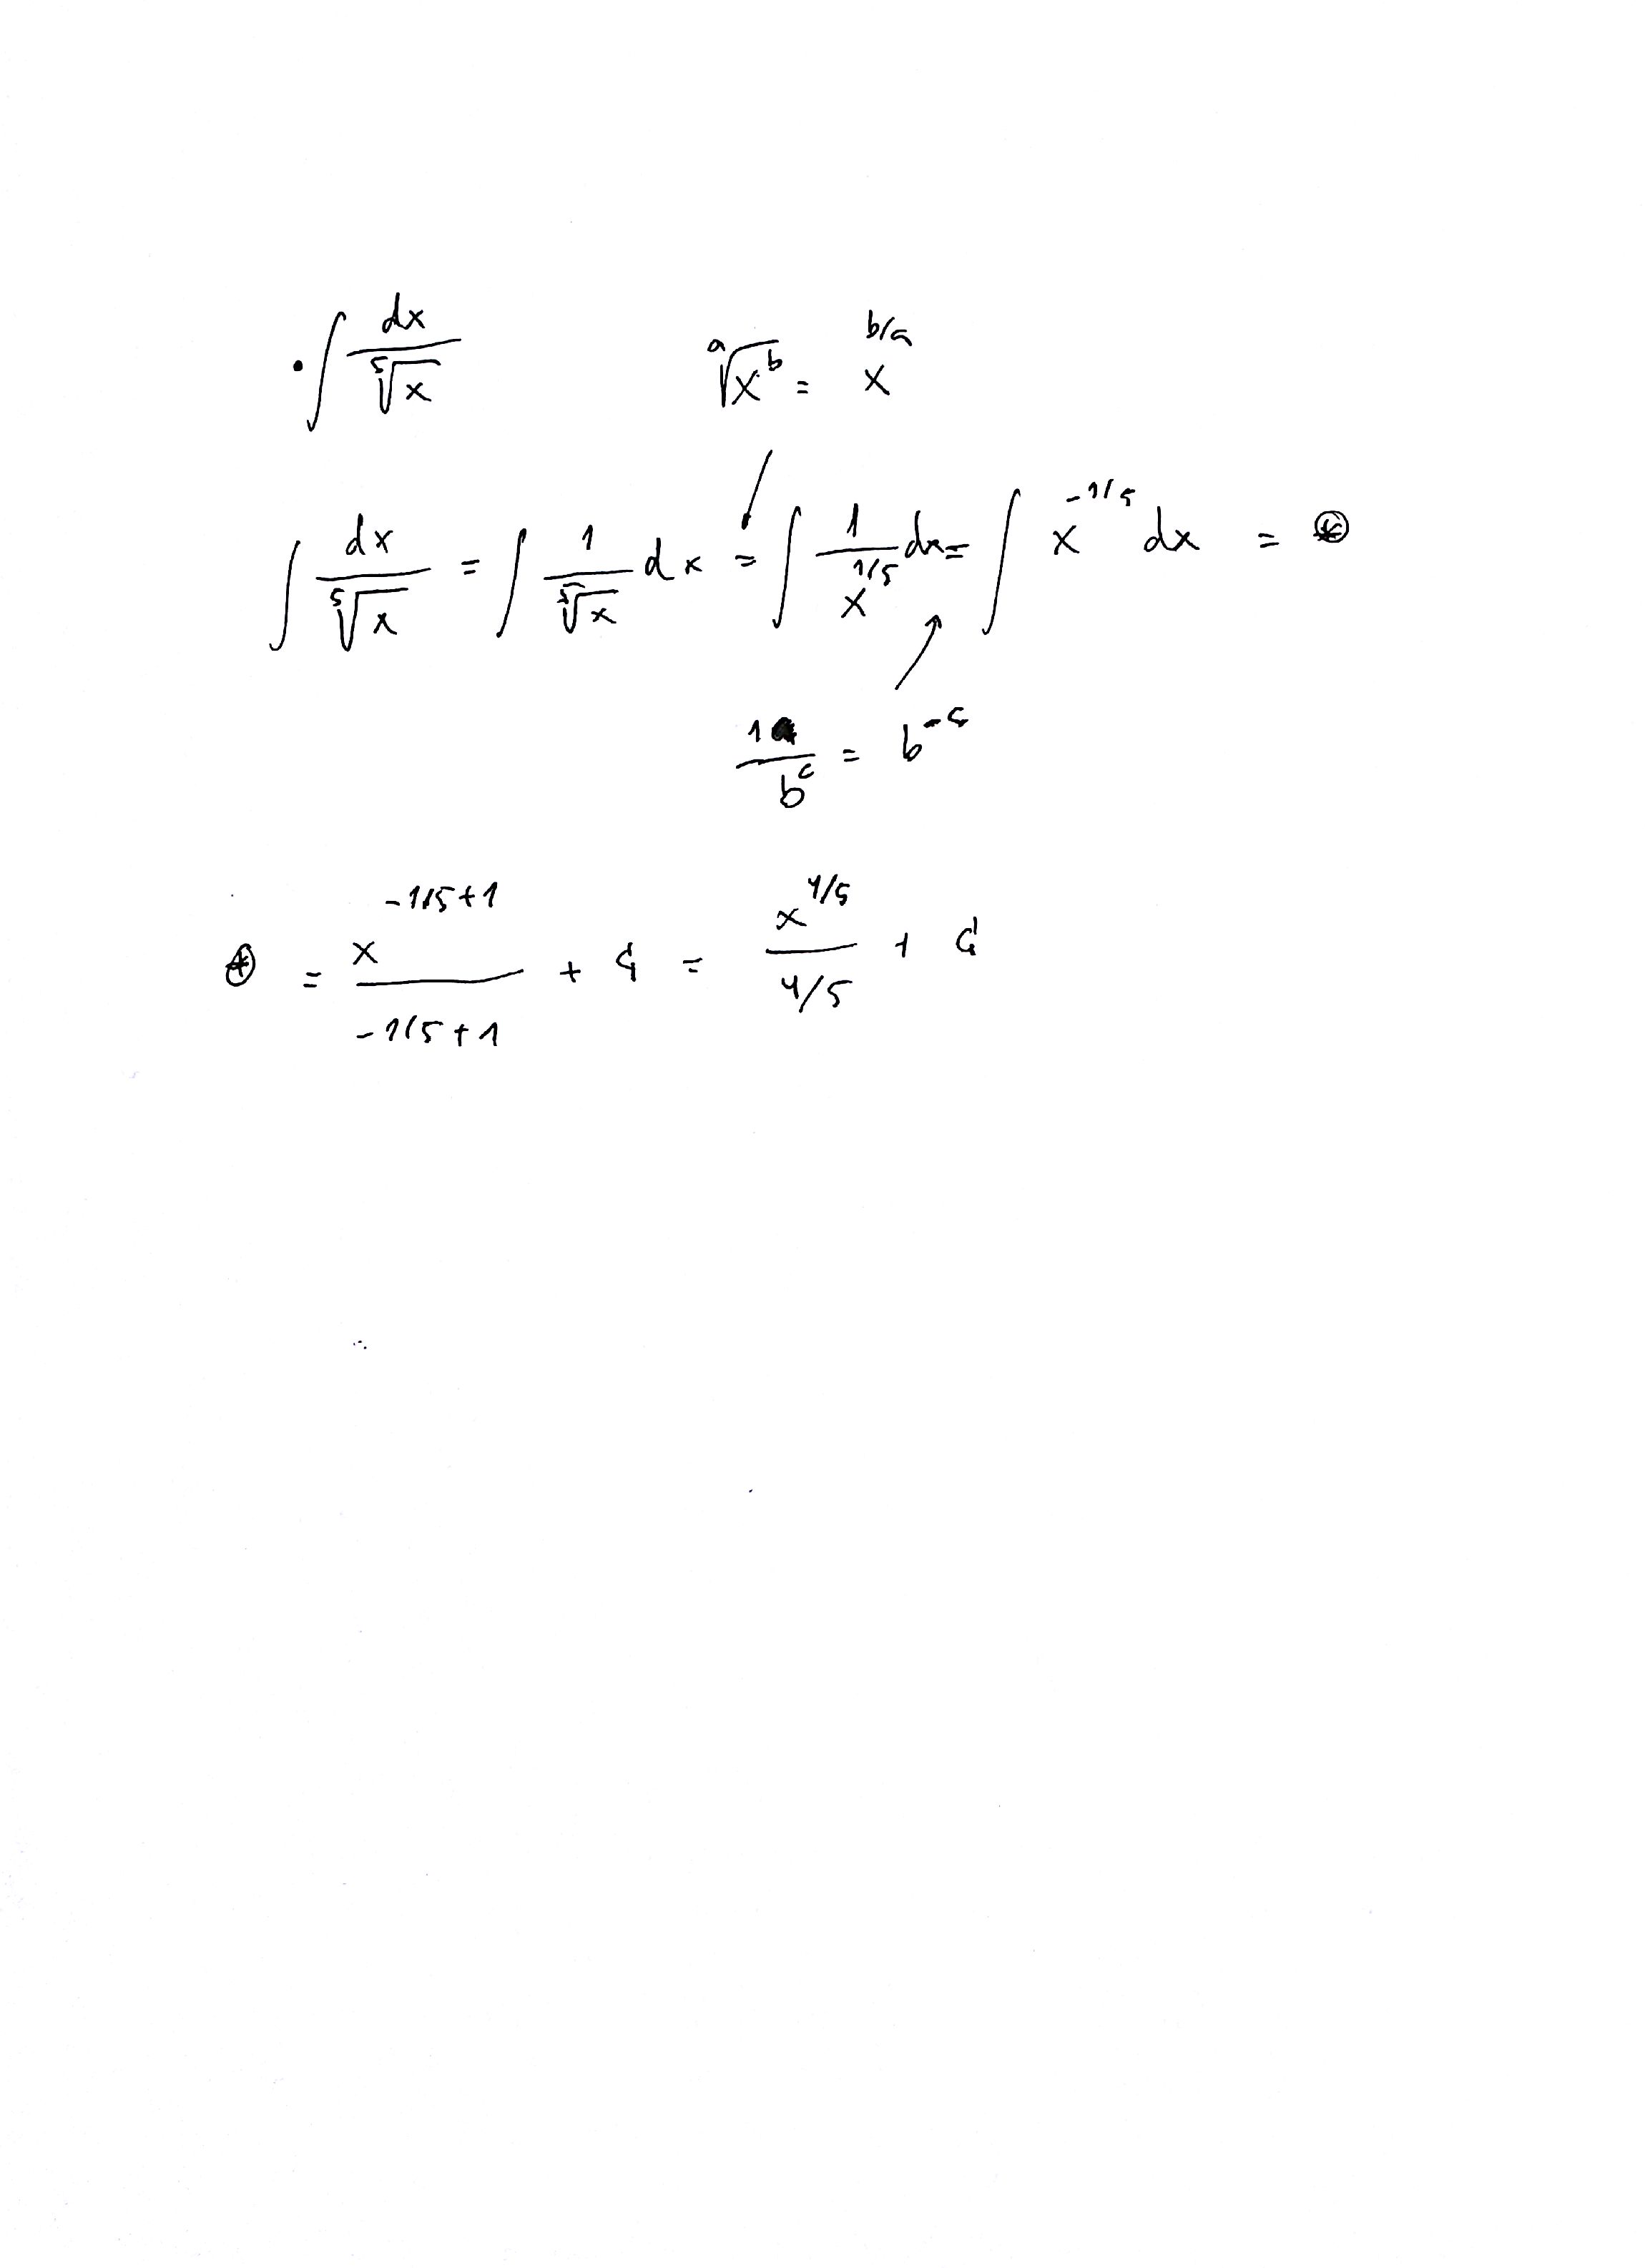 • ∫ dx / ⁵√x    ᵃ√(x^b) = x^(b/a)
∫ dx / ⁵√x = ∫ 1 / ⁵√x dx = ∫ 1 / x^(1/5) dx = ∫ x^(-1/5) dx = ⊛
1 / b^c = b^(-c)
⊛ = x^(-1/5+1) / (-1/5+1) + C = x^(4/5) / (4/5) + C